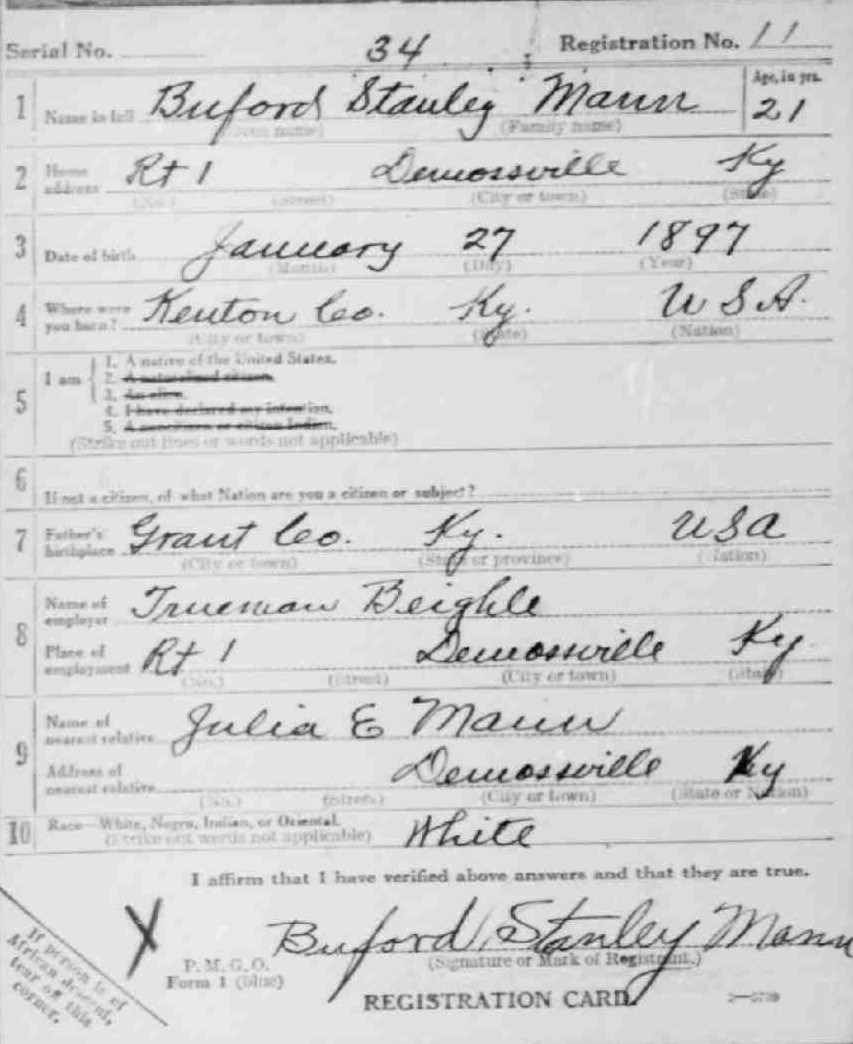 Serial No. 34 Registration No. 11
1 Name in full Buford Stanley Mann Age, in yrs. 21
(Given name) (Family name)
2 Home address Rt 1 Demossville Ky
(No.) (Street) (City or town) (State)
3 Date of birth January 27 1897
(Month) (Day) (Year)
4 Where were you born? Kenton Co. Ky. U S A.
(City or town) (State) (Nation)
5 I am
1. A native of the United States.
2. A naturalized citizen.
3. An alien.
4. I have declared my intention.
5. A noncitizen or citizen Indian.
(Strike out lines or words not applicable)
6 If not a citizen, of what Nation are you a citizen or subject?
7 Father's birthplace Grant Co. Ky. USA
(City or town) (State or province) (Nation)
8 Name of employer Trueman Beighle
Place of employment Rt 1 Demossville Ky.
(No.) (Street) (City or town) (State)
9 Name of nearest relative Julia E Mann
Address of nearest relative Demossville Ky
(No.) (Street) (City or town) (State or Nation)
10 Race—White, Negro, Indian, or Oriental. White
(Strike out words not applicable)
I affirm that I have verified above answers and that they are true.
X Buford Stanley Mann
(Signature or Mark of Registrant.)
P. M. G. O.
Form 1 (blue)
REGISTRATION CARD.
If person is of
African descent,
tear off this
corner.